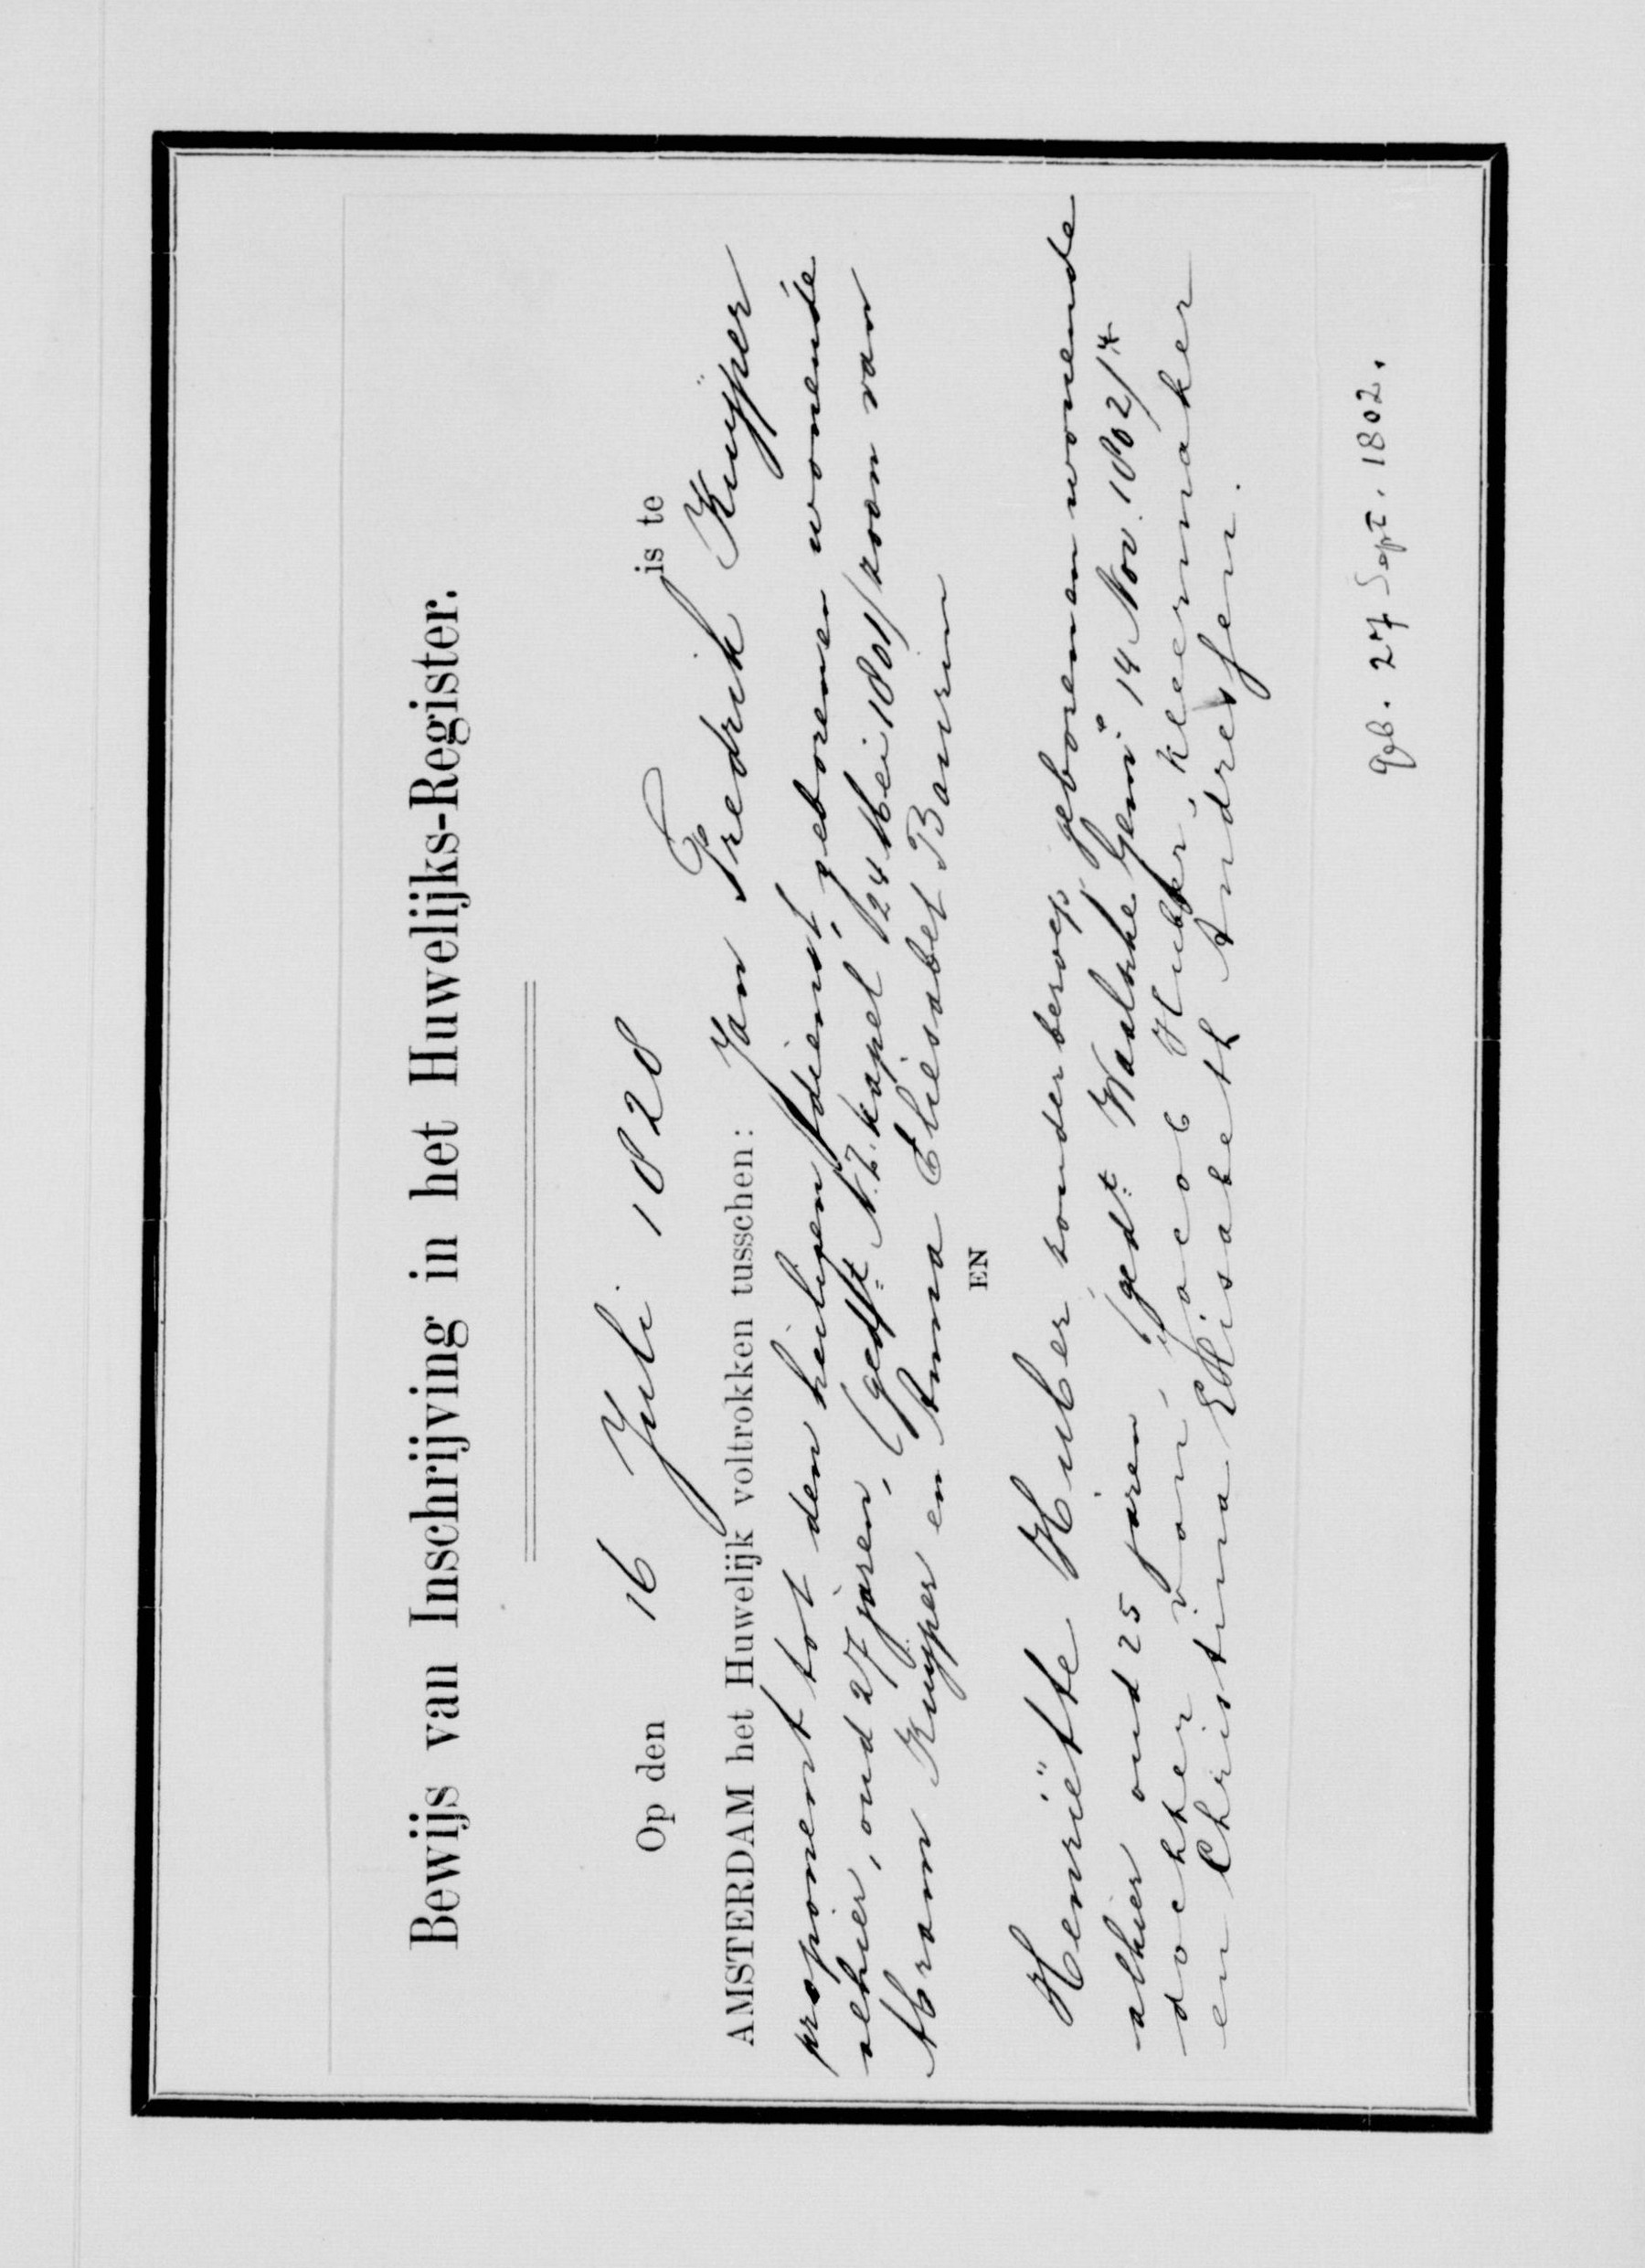 Bewijs van Inschrijving in het Huwelijks-Register.
Op den 16 Juli 1828 is te
AMSTERDAM het Huwelijk voltrokken tusschen: Jan Fredrik Kuÿper
proponent tot den heiligen dienst, geboren en wonende
alhier, oud 27 jaren, (gedt. N.Z. kapel 24 Mei 1801) zoon van
Abram Kuÿper en Anna Eliesabet Baurin
EN
Henriëtte Huber, zonder beroep, geboren en wonende
alhier oud 25 jaren (gedt. Waalsche Gemte 14 Nov. 1802)
dochter van Jacob Huber, kleermaker
en Christina Elisabeth Andresfen.
geb. 27 Sept. 1802.